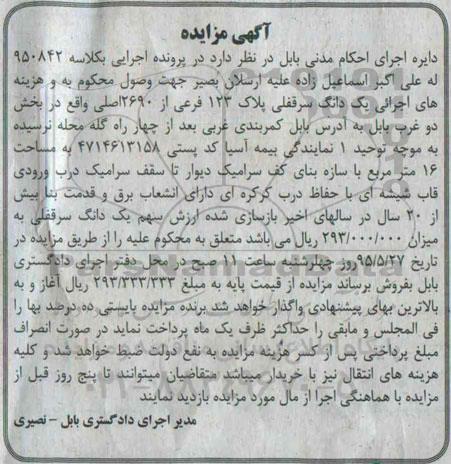 آگهی مزایده
دایره اجرای احکام مدنی بابل در نظر دارد در پرونده اجرایی بکلاسه ۹۵۰۸۴۲
له علی اکبر اسماعیل زاده علیه ارسلان بصیر جهت وصول محکوم به و هزینه
های اجرائی یک دانگ سرقفلی پلاک ۱۲۳ فرعی از ۲۶۹۰اصلی واقع در بخش
دو غرب بابل به آدرس بابل کمربندی غربی بعد از چهار راه گله محله نرسیده
به موجه توحید ۱ نمایندگی بیمه آسیا کد پستی ۴۷۱۴۶۱۳۱۵۸ به مساحت
۱۶ متر مربع با سازه بنای کف سرامیک دیوار تا سقف سرامیک درب ورودی
قاب شیشه ای با حفاظ درب کرکره ای دارای انشعاب برق و قدمت بنا بیش
از ۲۰ سال در سالهای اخیر بازسازی شده ارزش سهم یک دانگ سرقفلی به
میزان ۲۹۳/۰۰۰/۰۰۰ ریال می باشد متعلق به محکوم علیه را از طریق مزایده در
تاریخ ۹۵/۵/۲۷روز چهارشنبه ساعت ۱۱ صبح در محل دفتر اجرای دادگستری
بابل بفروش برساند مزایده از قیمت پایه به مبلغ ۲۹۳/۳۳۳/۳۳۳ ریال آغاز و به
بالاترین بهای پیشنهادی واگذار خواهد شد برنده مزایده بایستی ده درصد بها را
فی المجلس و مابقی را حداکثر ظرف یک ماه پرداخت نماید در صورت انصراف
مبلغ پرداختی پس از کسر هزینه مزایده به نفع دولت ضبط خواهد شد و کلیه
هزینه های انتقال نیز با خریدار میباشد متقاضیان میتوانند تا پنج روز قبل از
مزایده با هماهنگی اجرا از مال مورد مزایده بازدید نمایند
مدیر اجرای دادگستری بابل – نصیری